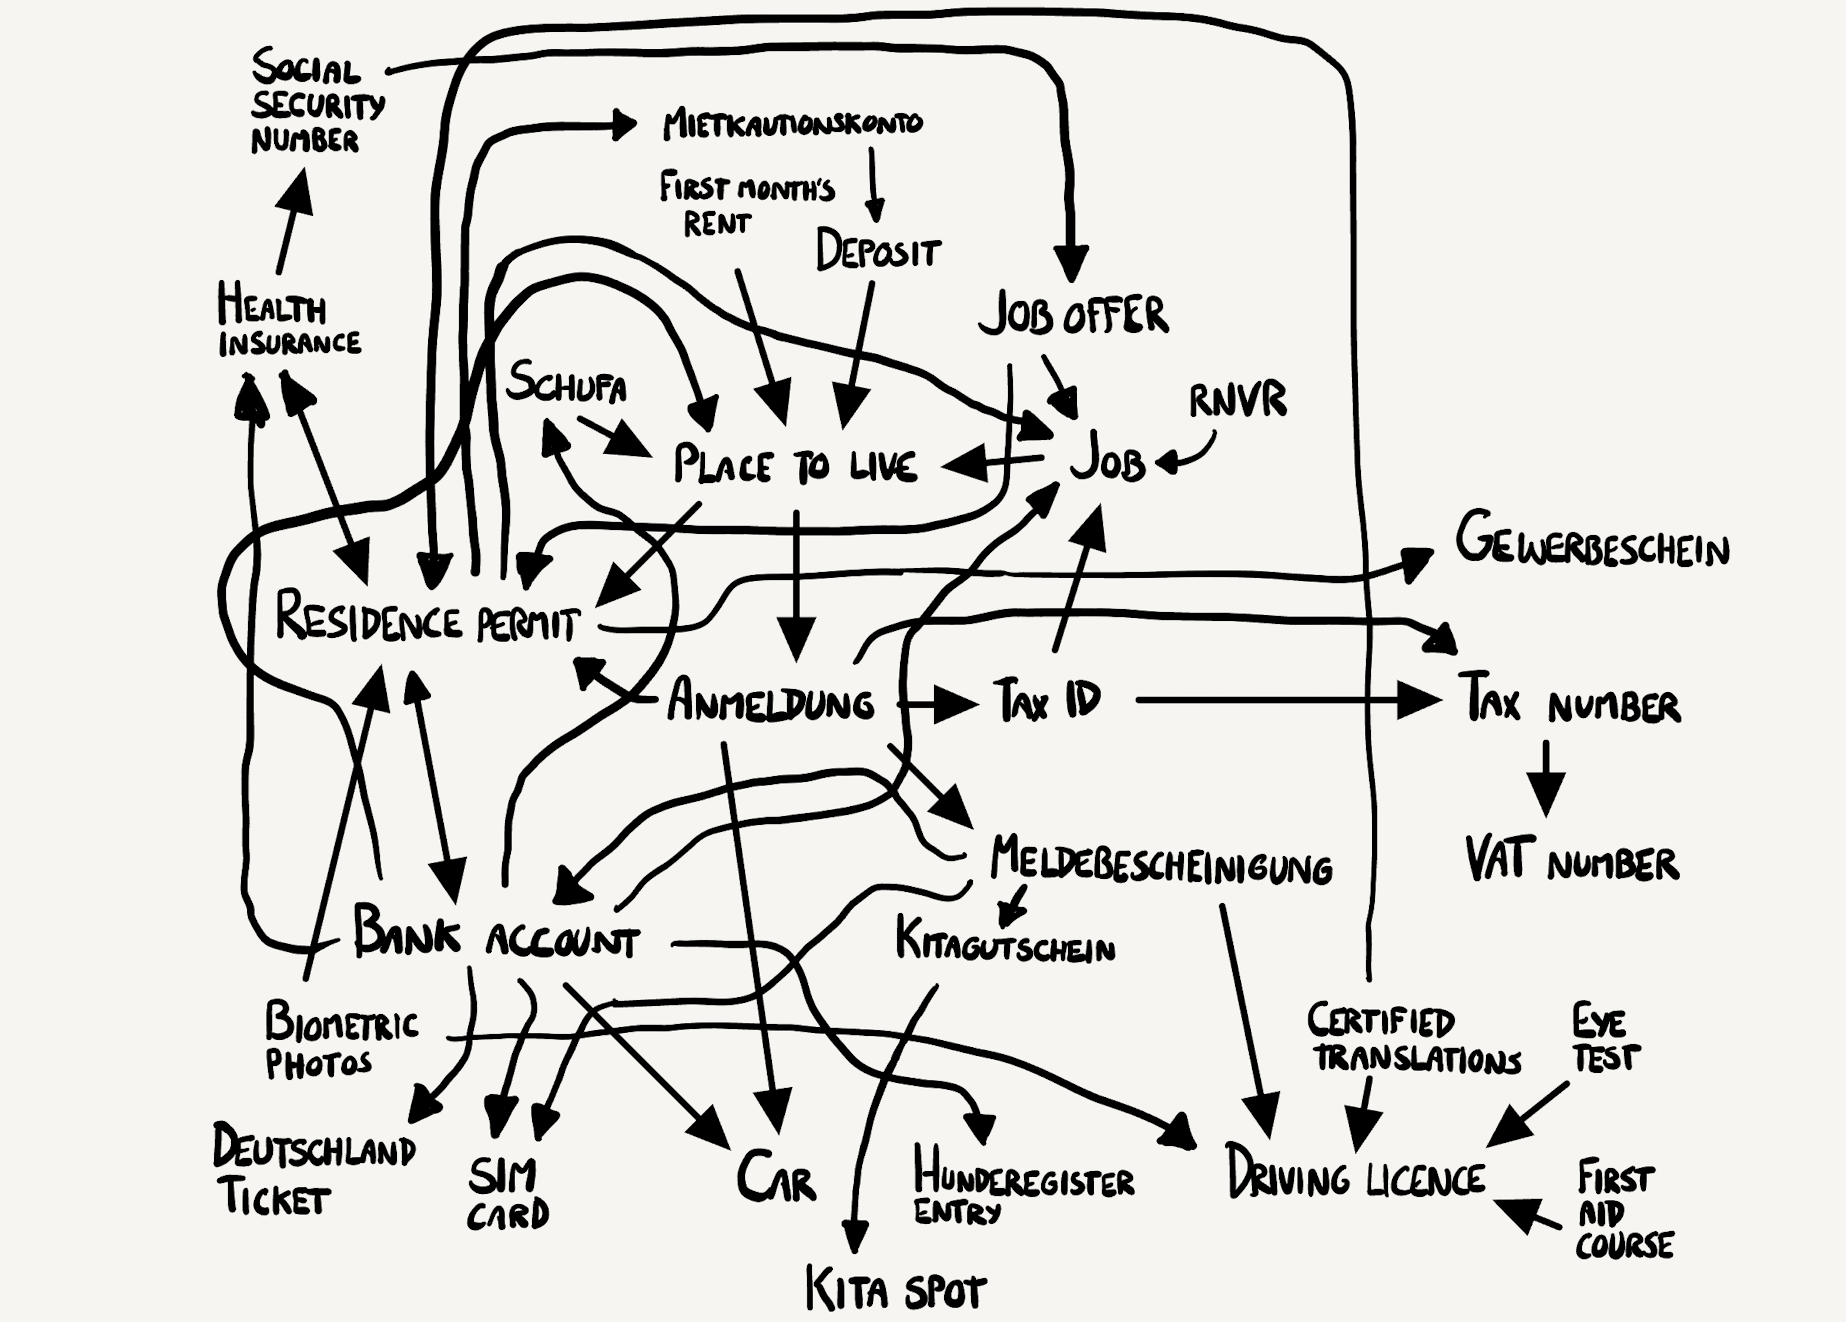 SOCIAL
SECURITY
NUMBER
MIETKAUTIONSKONTO
FIRST MONTH'S
RENT
DEPOSIT
HEALTH
INSURANCE
JOB OFFER
SCHUFA
RNVR
PLACE TO LIVE
JOB
GEWERBESCHEIN
RESIDENCE PERMIT
ANMELDUNG
TAX ID
TAX NUMBER
MELDEBESCHEINIGUNG
VAT NUMBER
BANK ACCOUNT
KITAGUTSCHEIN
BIOMETRIC
PHOTOS
CERTIFIED
TRANSLATIONS
EYE
TEST
DEUTSCHLAND
TICKET
SIM
CARD
CAR
HUNDEREGISTER
ENTRY
DRIVING LICENCE
FIRST
AID
COURSE
KITA SPOT